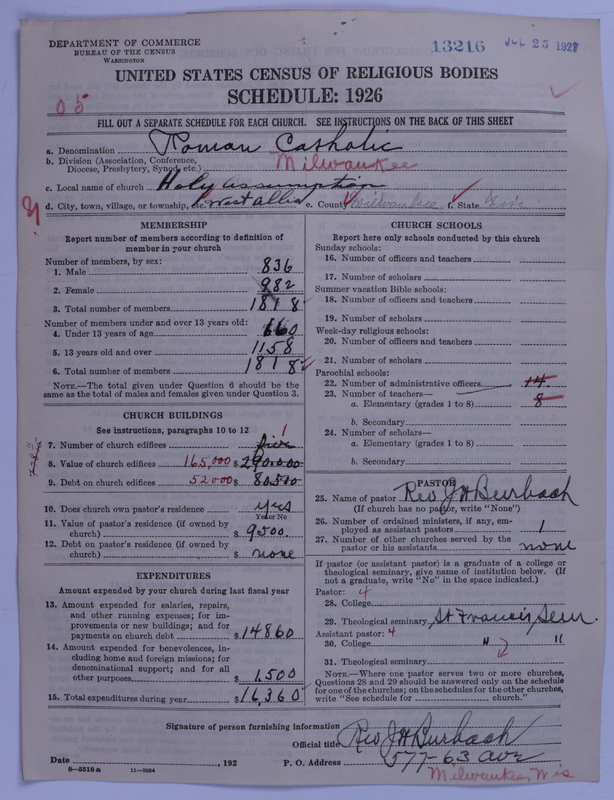 DEPARTMENT OF COMMERCE
BUREAU OF THE CENSUS
WASHINGTON
13216 JUL 25 1927
UNITED STATES CENSUS OF RELIGIOUS BODIES
SCHEDULE: 1926
05
FILL OUT A SEPARATE SCHEDULE FOR EACH CHURCH. SEE INSTRUCTIONS ON THE BACK OF THIS SHEET
a. Denomination Roman Catholic
b. Division (Association, Conference, Diocese, Presbytery, Synod, etc.) Milwaukee
c. Local name of church Holy Assumption
d. City, town, village, or township, etc. West Allis e. County Milwaukee f. State Wis
MEMBERSHIP
Report number of members according to definition of member in your church
Number of members, by sex:
1. Male 836
2. Female 982
3. Total number of members 1818
Number of members under and over 13 years old:
4. Under 13 years of age 660
5. 13 years old and over 1158
6. Total number of members 1818
NOTE.—The total given under Question 6 should be the same as the total of males and females given under Question 3.
CHURCH BUILDINGS
See instructions, paragraphs 10 to 12
7. Number of church edifices five 1
8. Value of church edifices 165,000 $ 290.000
9. Debt on church edifices 52000 $ 80500
10. Does church own pastor's residence yes
Yes or No
11. Value of pastor's residence (if owned by church) $ 9500.
12. Debt on pastor's residence (if owned by church) $ none
EXPENDITURES
Amount expended by your church during last fiscal year
13. Amount expended for salaries, repairs, and other running expenses; for improvements or new buildings; and for payments on church debt $ 14860
14. Amount expended for benevolences, including home and foreign missions; for denominational support; and for all other purposes $ 1,500
15. Total expenditures during year $ 16,360
CHURCH SCHOOLS
Report here only schools conducted by this church
Sunday schools:
16. Number of officers and teachers
17. Number of scholars
Summer vacation Bible schools:
18. Number of officers and teachers
19. Number of scholars
Week-day religious schools:
20. Number of officers and teachers
21. Number of scholars
Parochial schools:
22. Number of administrative officers 14.
23. Number of teachers—
a. Elementary (grades 1 to 8) 8
b. Secondary
24. Number of scholars—
a. Elementary (grades 1 to 8)
b. Secondary
PASTOR
25. Name of pastor Rev J H Burbach
(If church has no pastor, write "None")
26. Number of ordained ministers, if any, employed as assistant pastors 1
27. Number of other churches served by the pastor or his assistants none
If pastor (or assistant pastor) is a graduate of a college or theological seminary, give name of institution below. (If not a graduate, write "No" in the space indicated.)
Pastor: 4
28. College
29. Theological seminary St Francis Sem.
Assistant pastor: 4
30. College " "
31. Theological seminary
NOTE.—Where one pastor serves two or more churches, Questions 28 and 29 should be answered only on the schedule for one of the churches; on the schedules for the other churches, write "See schedule for church."
Signature of person furnishing information Rev J H Burbach
Official title
Date , 192 P. O. Address 577-63 ave
Milwaukee, Wis
8-5518 a 11-9054